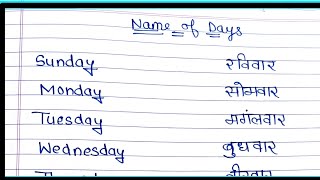 Name of Days
Sunday रविवार
Monday सोमवार
Tuesday मगंलवार
Wednesday बुधवार